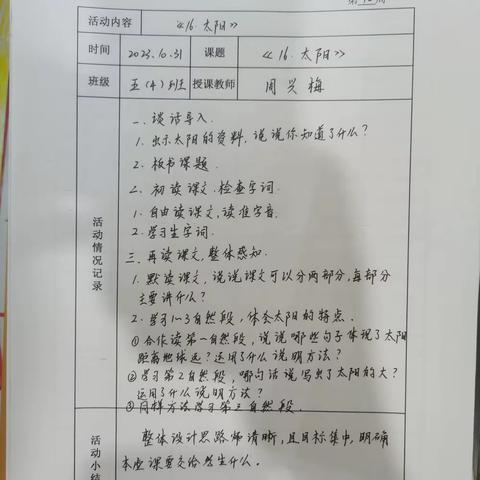 活动内容 《16.太阳》
时间 2023.10.31 课题 《16.太阳》
班级 五(4)班 授课教师 周兴梅
活动情况记录
一、谈话导入.
1.出示太阳的资料,说说你知道了什么?
2.板书课题.
二、初读课文.检查字词.
1.自由读课文,读准字音.
2.学习生字词.
三、再读课文,整体感知.
1.默读课文,说说课文可以分两部分,每部分
主要讲什么?
2.学习1~3自然段,体会太阳的特点.
①合作读第一自然段,说说哪些句子体现了太阳
距离地球远?运用了什么说明方法?
②学习第2自然段,哪句话说写出了太阳的大?
运用了什么说明方法?
③同样方法学习第三自然段.
活动小结
整体设计思路师清晰,且目标集中,明确
本应课要交给学生什么.